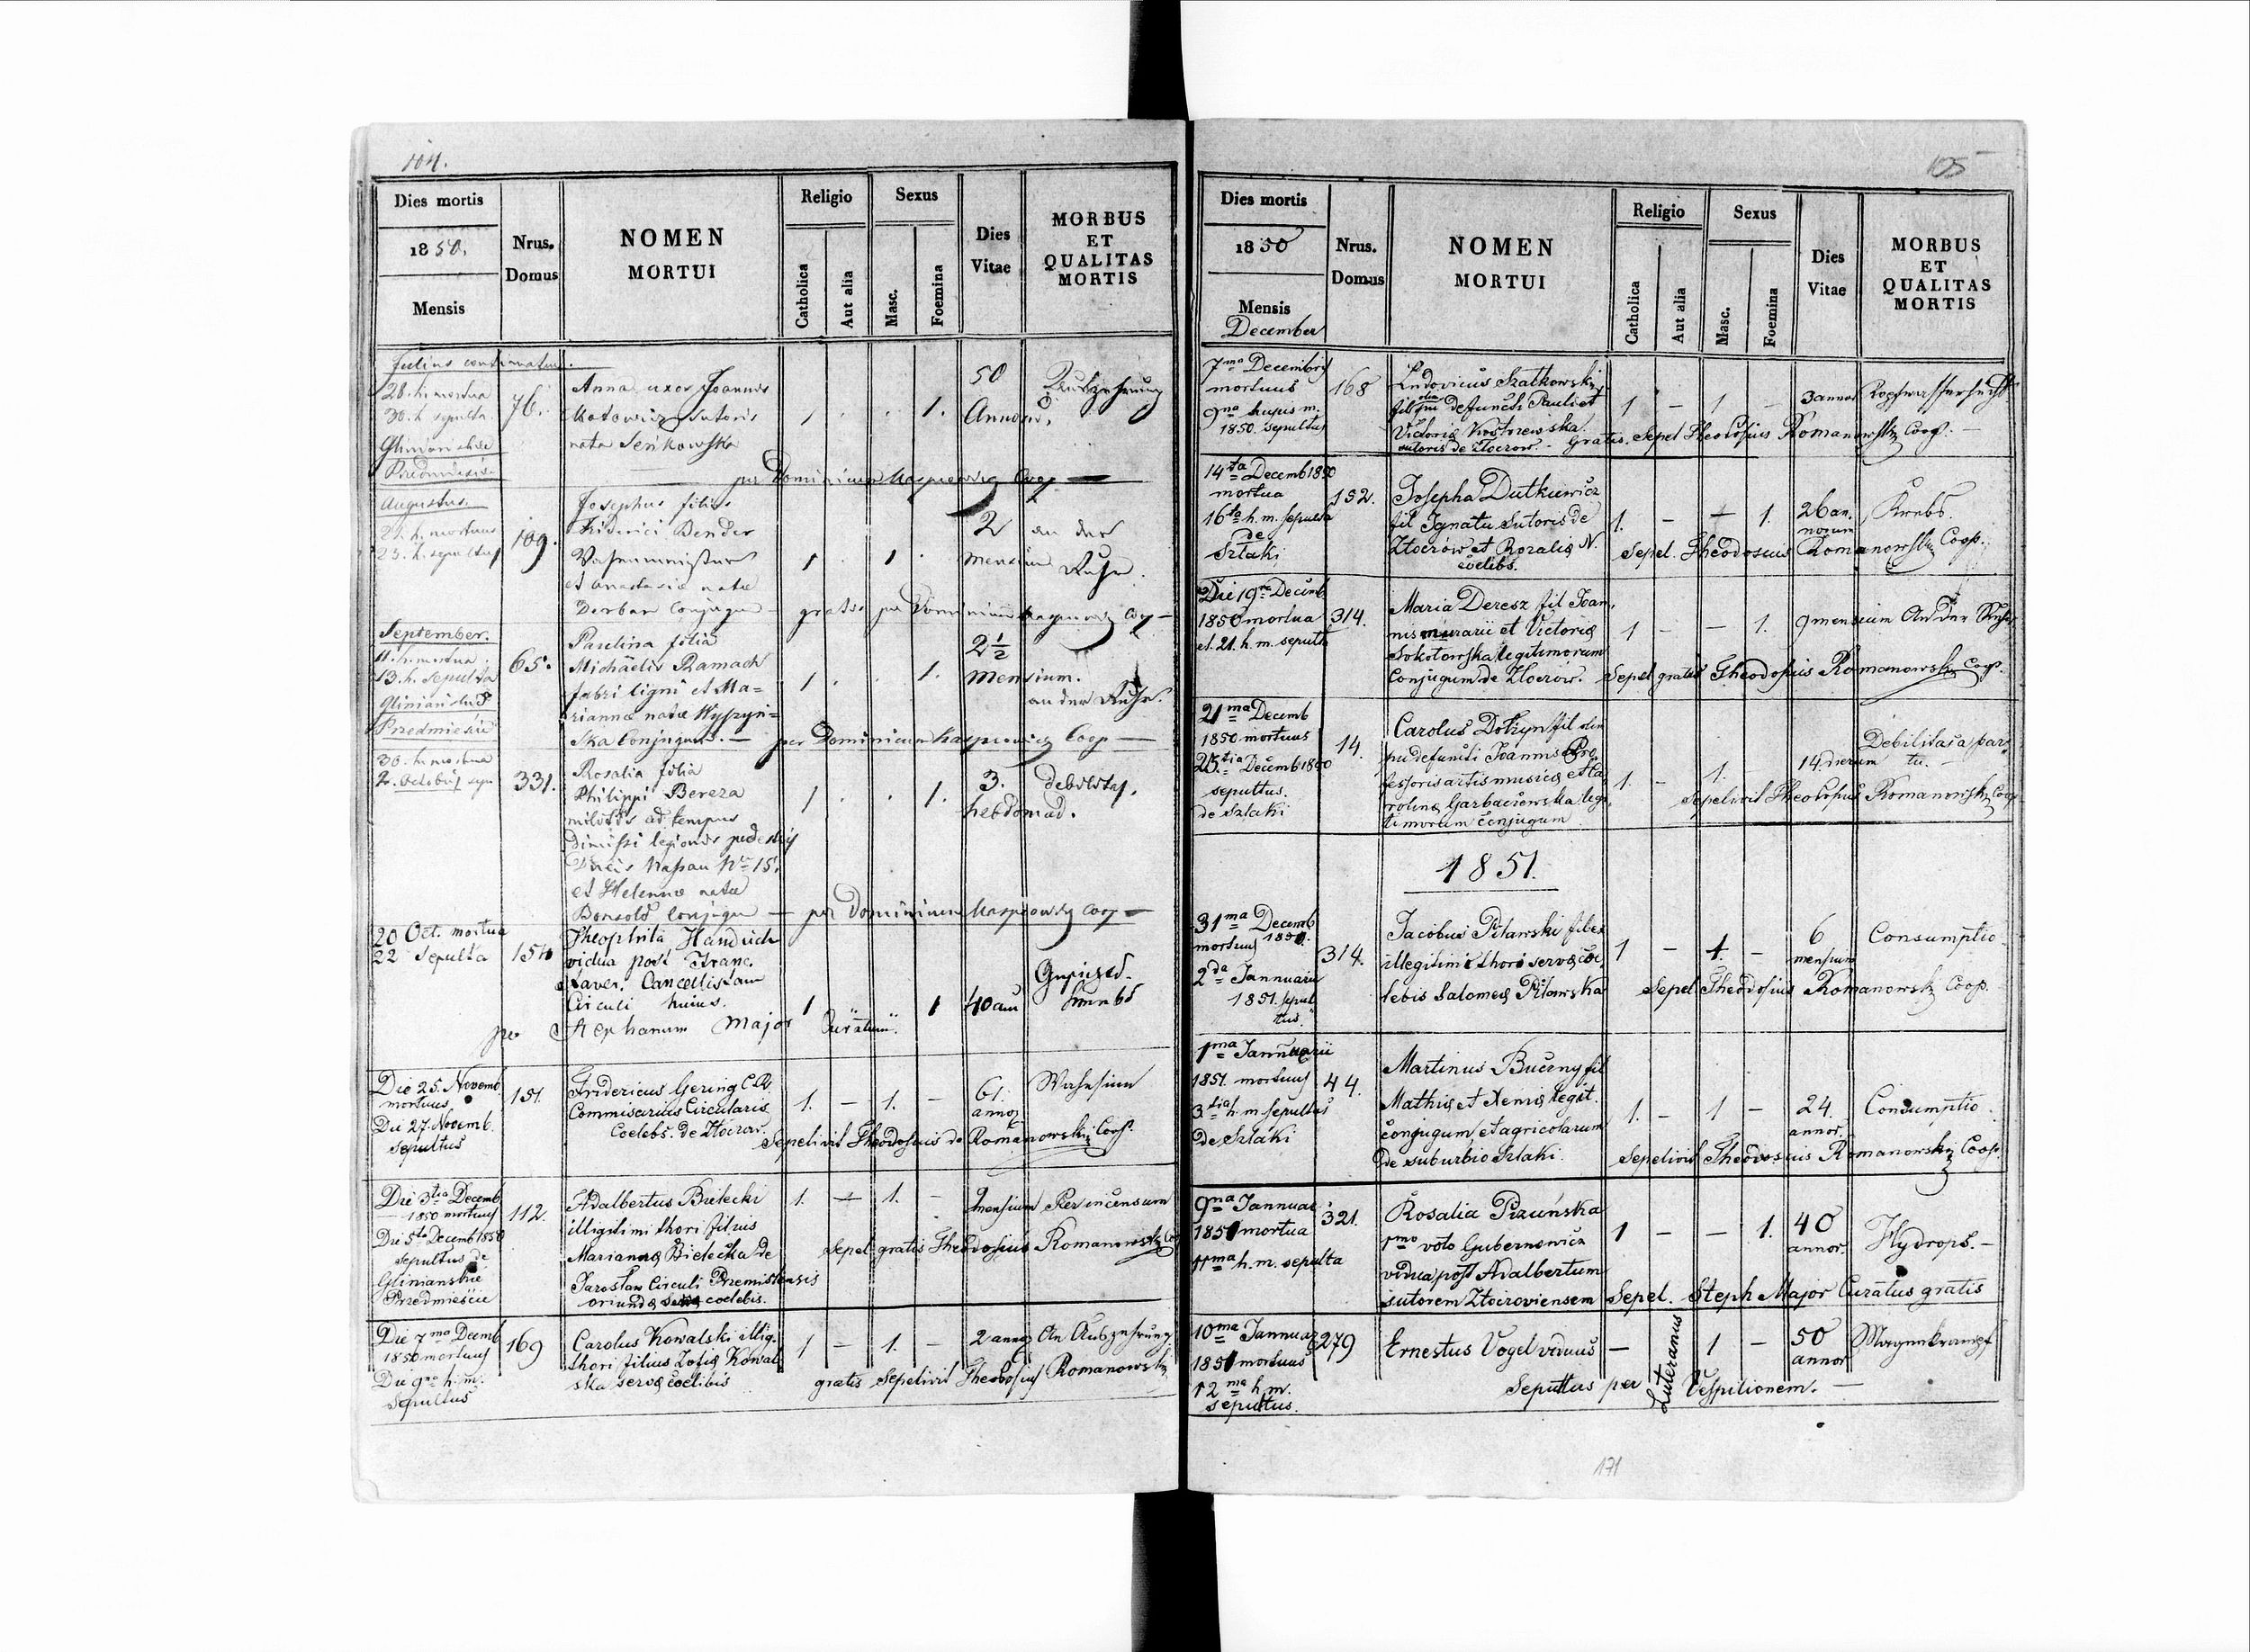 104.
Dies mortis
1850.
Mensis
Nrus. Domus
NOMEN MORTUI
Religio
Catholica
Aut alia
Sexus
Masc.
Foemina
Dies Vitae
MORBUS ET QUALITAS MORTIS
Julius continuatur.
28. h. mortua
30. h. sepulta
76.
Anna uxor Joannis
sutoris
nata Seńkowska
1 . . 1.
50
Annor.
Auszehrung
per Dominicum Kasprowicz Coop
Augustus.
21. h. mortuus
23. h. sepultus
109.
Josephus filius
Friderici Bender
et Anastasiae natae
Derban Conjugum
1 . 1 .
2
mensium
an der
Ruhr.
gratis per Dominicum Kasprowicz Coop
September.
11. h. mortua
13. h. sepulta
Przedmieście
65.
Paulina filia
Michaelis Ramach
fabri ligni et Ma=
riannae natae
ska Conjugum. —
1 . . 1.
2½
mensium.
an der Ruhr.
per Dominicum Kasprowicz Coop —
30. h. mortua
2. Octobris sep
331.
Rosalia filia
Philippi Bereza
militis ad tempus
dimissi legionis pedestris
Ducis Nassau No 15.
et Helenae natae
conjugum
1 . . 1.
3.
hebdomad.
debilitas.
per Dominicum Kasprowicz Coop —
20 Oct. mortua
22 Sepulta
154
Theophila Handrich
vidua post Franc.
Xaver. Cancellistam
Circuli huius.
1 1
40 ann
per Stephanum Major Curatum.
Die 25. Novemb.
mortuus
Die 27. Novemb.
Sepultus
151.
Fridericus Gering C.R.
Commisarius Circularis
Coelebs. de Złoczow.
1. – 1. –
61.
annor
Wahnsinn
Sepelivit Theodosius de Romanowski Coop.
Die 3tia Decemb.
1850 mortuus
Die 5ta Decemb 1850
sepultus de
Glinianskie
Przedmieście
112.
Adalbertus Bielecki
illigitimi thori filius
Mariannae Bielecka de
Jaroslaw Circuli Premisliensis
oriundae coelebis.
1. – 1. –
mensium
Per incensum
Sepel gratis Theodosius Romanowski Co
Die 7ma Decemb
1850 mortuus
Die 9na h. m.
Sepultus
169
Carolus Kowalski illig.
thori filius Zofiae Kowal
ska servae coelibis
1 – 1. –
2 annor
An Auszehrung
gratis Sepelivit Theodosius Romanowski
105
Dies mortis
1850
Mensis
December
Nrus. Domus
NOMEN MORTUI
Religio
Catholica
Aut alia
Sexus
Masc.
Foemina
Dies Vitae
MORBUS ET QUALITAS MORTIS
7ma Decembris
mortuus
9na hujus m.
1850. sepultus
168
Ludovicus Szatkowski
fil olim defuncti Pauli et
Victoriae
sutoris de Zloczow. –
1 – 1 –
3 annor
Kopfwassersucht
Gratis. Sepel Theodosius Romanowski Coop. —
14ta Decemb 1850
mortua
16ta h. m. sepulta
de
Szlaki
152.
Josepha Dutkiewicz
fil Ignatii Sutoris de
Złoczów et Rozalia N.
coelebs.
1. – – 1.
26 an.
norum
Krebs.
Sepel. Theodosius Romanowski Coop.
Die 19na Decemb
1850 mortua
et. 21. h. m. sepulta
314.
Maria Deresz fil Joan,
nis murarii et Victoriae
Sokołowska legitimorum
Conjugum de Zloczow.
1 – – 1.
9 mensium
An der Ruhr
Sepel gratis Theodosius Romanowski Coop.
21ma Decemb
1850 mortuus
23tia Decemb 1850
sepultus.
de Szlaki
14.
Carolus fil olim
defuncti Joannis Pro,
fessoris artis musicae et Ca
rolinae Garbaczewska legi,
timorum conjugum
1. – 1.
14. dierum
Debilitas a par,
tu. –
Sepelivit Theodosius Romanowski Coop
1851.
31ma Decemb
mortuus 1850.
2da Jannuarii
1851. sepul
tus.
314.
Jacobus Pilawski filius
illegitimi thori servae coe,
lebis Salomeae Pilawska
1 – 1. –
6
mensium
Consumptio
Sepel Theodosius Romanowski Coop.
1ma Jannuarii
1851. mortuus
3tia h. m. sepultus
de Szlaki
44.
Martinus Buczny fil
Mathiae et Xeniae legit.
conjugum et agricolarum
de suburbio Szlaki.
1. – 1 –
24.
annor.
Consumptio.
Sepelivit Theodosius Romanowski Coop.
9na Jannuar
1851 mortua
11ma h. m. sepulta
321.
Rosalia
1mo voto Gubernowicz
vidua post Adalbertum
sutorem Złoczoviensem
1 – – 1.
40
annor.
Hydrops. –
Sepel. Steph Major Curatus gratis
10ma Jannuar
1851 mortuus
12ma h. m.
sepultus.
279
Ernestus Vogel viduus
–
Luteranus
1 –
50
annor
Magenkrampf
Sepultus per Vespilionem. —
171